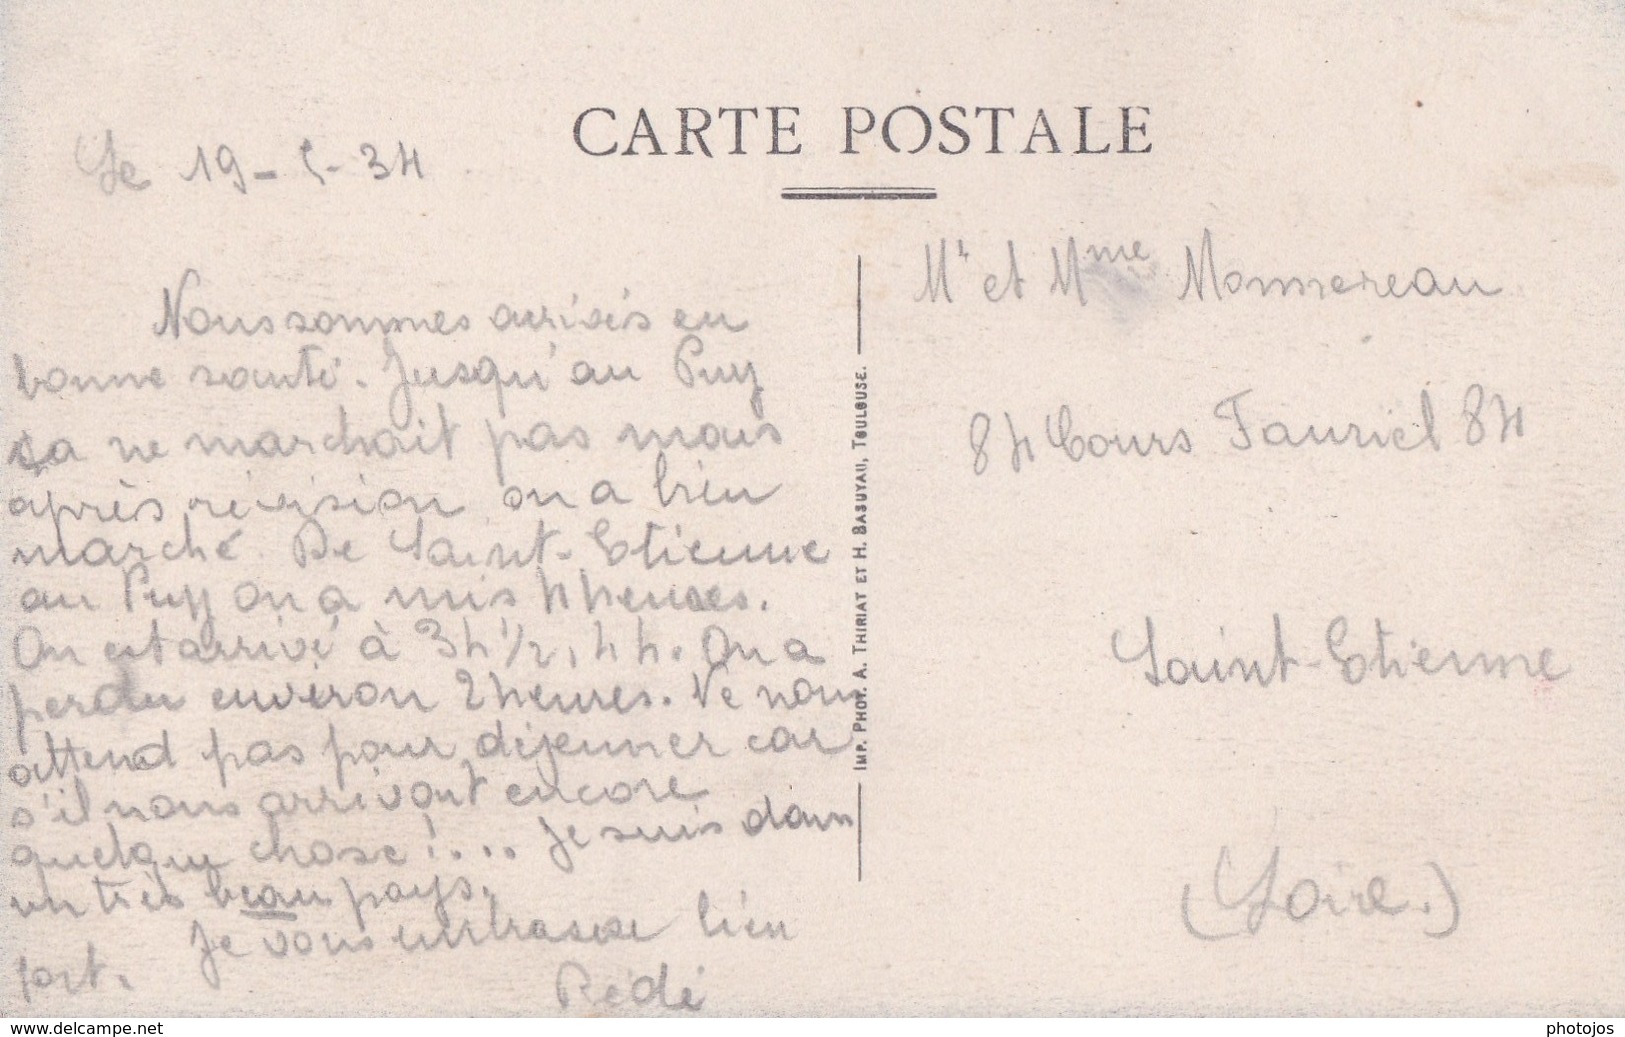 CARTE POSTALE
Le 19-5-34
Nous sommes arrivés en
bonne santé. Jusqu'au Puy
ça ne marchait pas mais
après révision on a bien
marché. De Saint-Etienne
au Puy on a mis 4 heures.
On est arrivé à 3h 1/2, 4h. On a
perdu environ 2 heures. Ne nous
attend pas pour déjeuner car
s'il nous arrivait encore
quelque chose!... Je suis dans
un très beau pays.
Je vous embrasse bien
fort.
Dédé
Mr et Mme Monnereau
84 Cours Fauriel 84
Saint-Etienne
(Loire.)
IMP. PHOT. A. THIRIAT ET H. BASUYAU, TOULOUSE.
www.delcampe.net
photojos